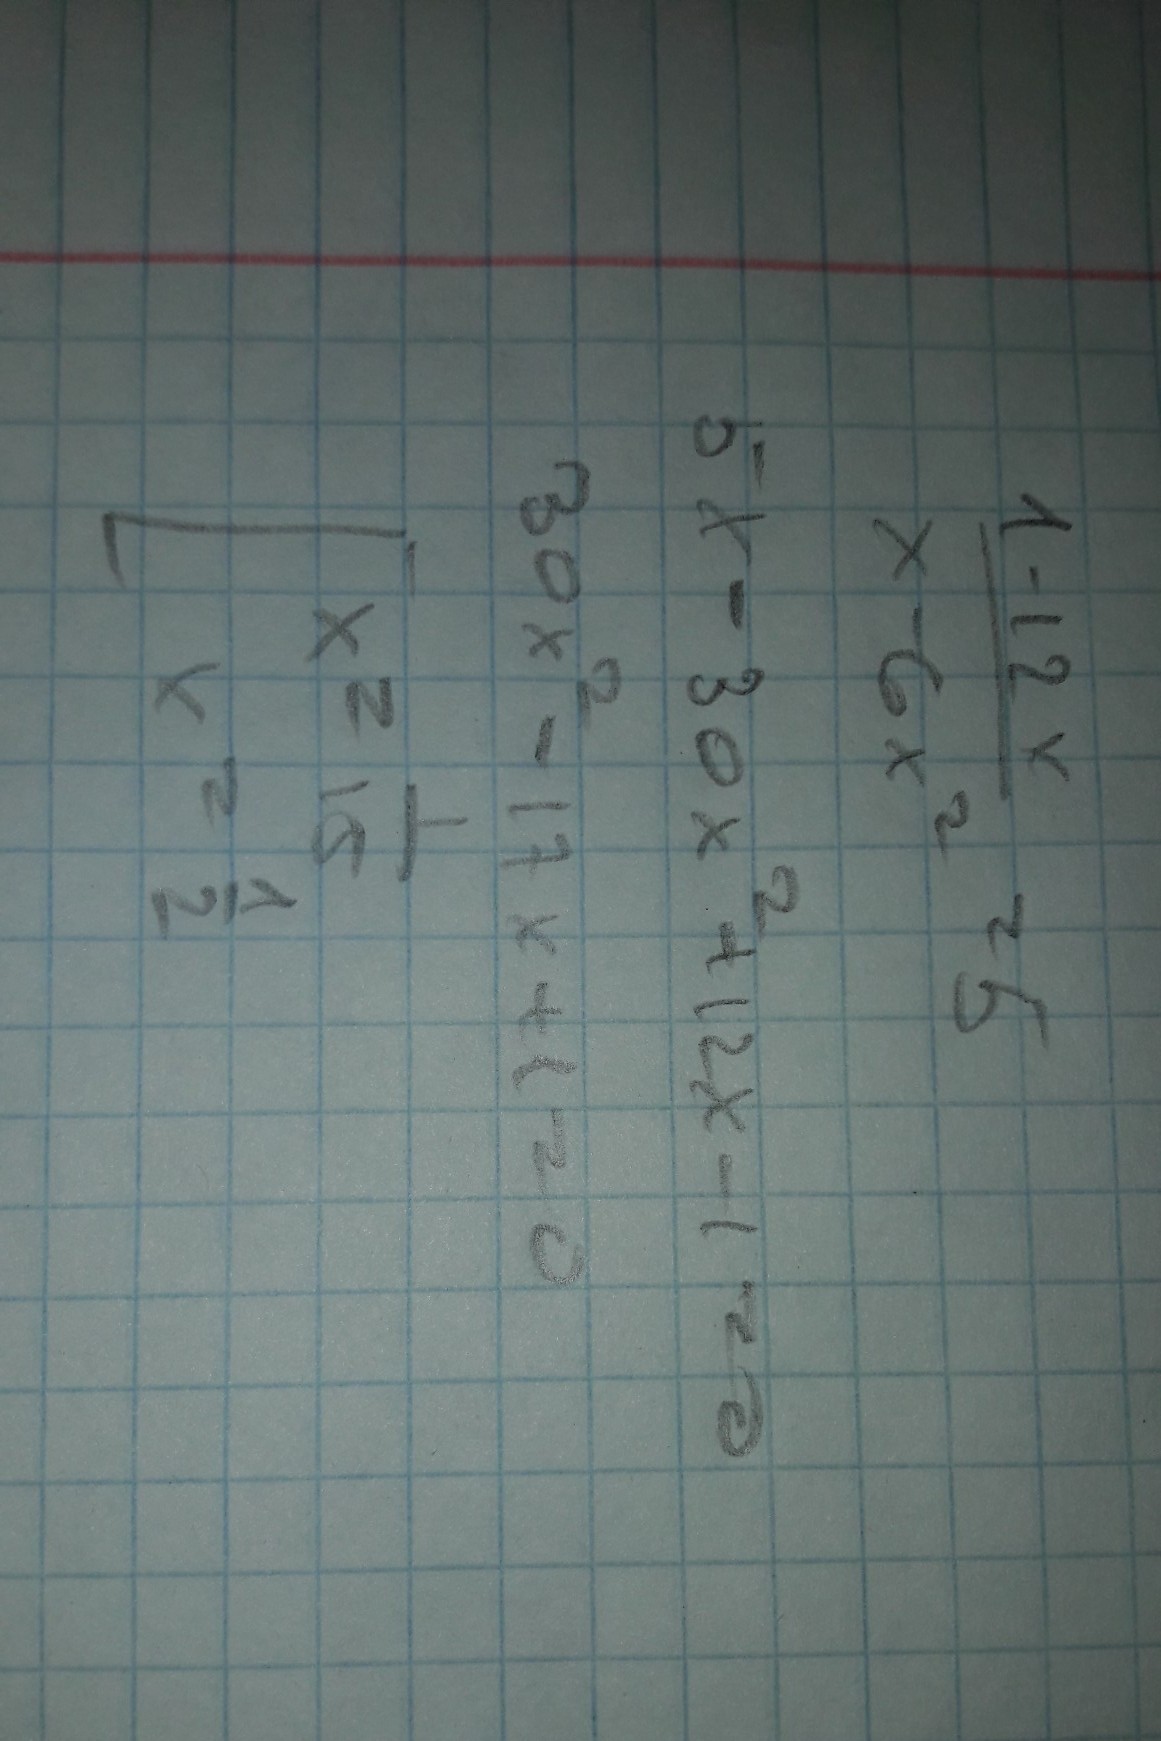 1-12x
x-6x² = 5
5x - 30x² + 12x - 1 = 0
30x² - 17x + 1 = 0
[ x = 1/15
x = 1/2